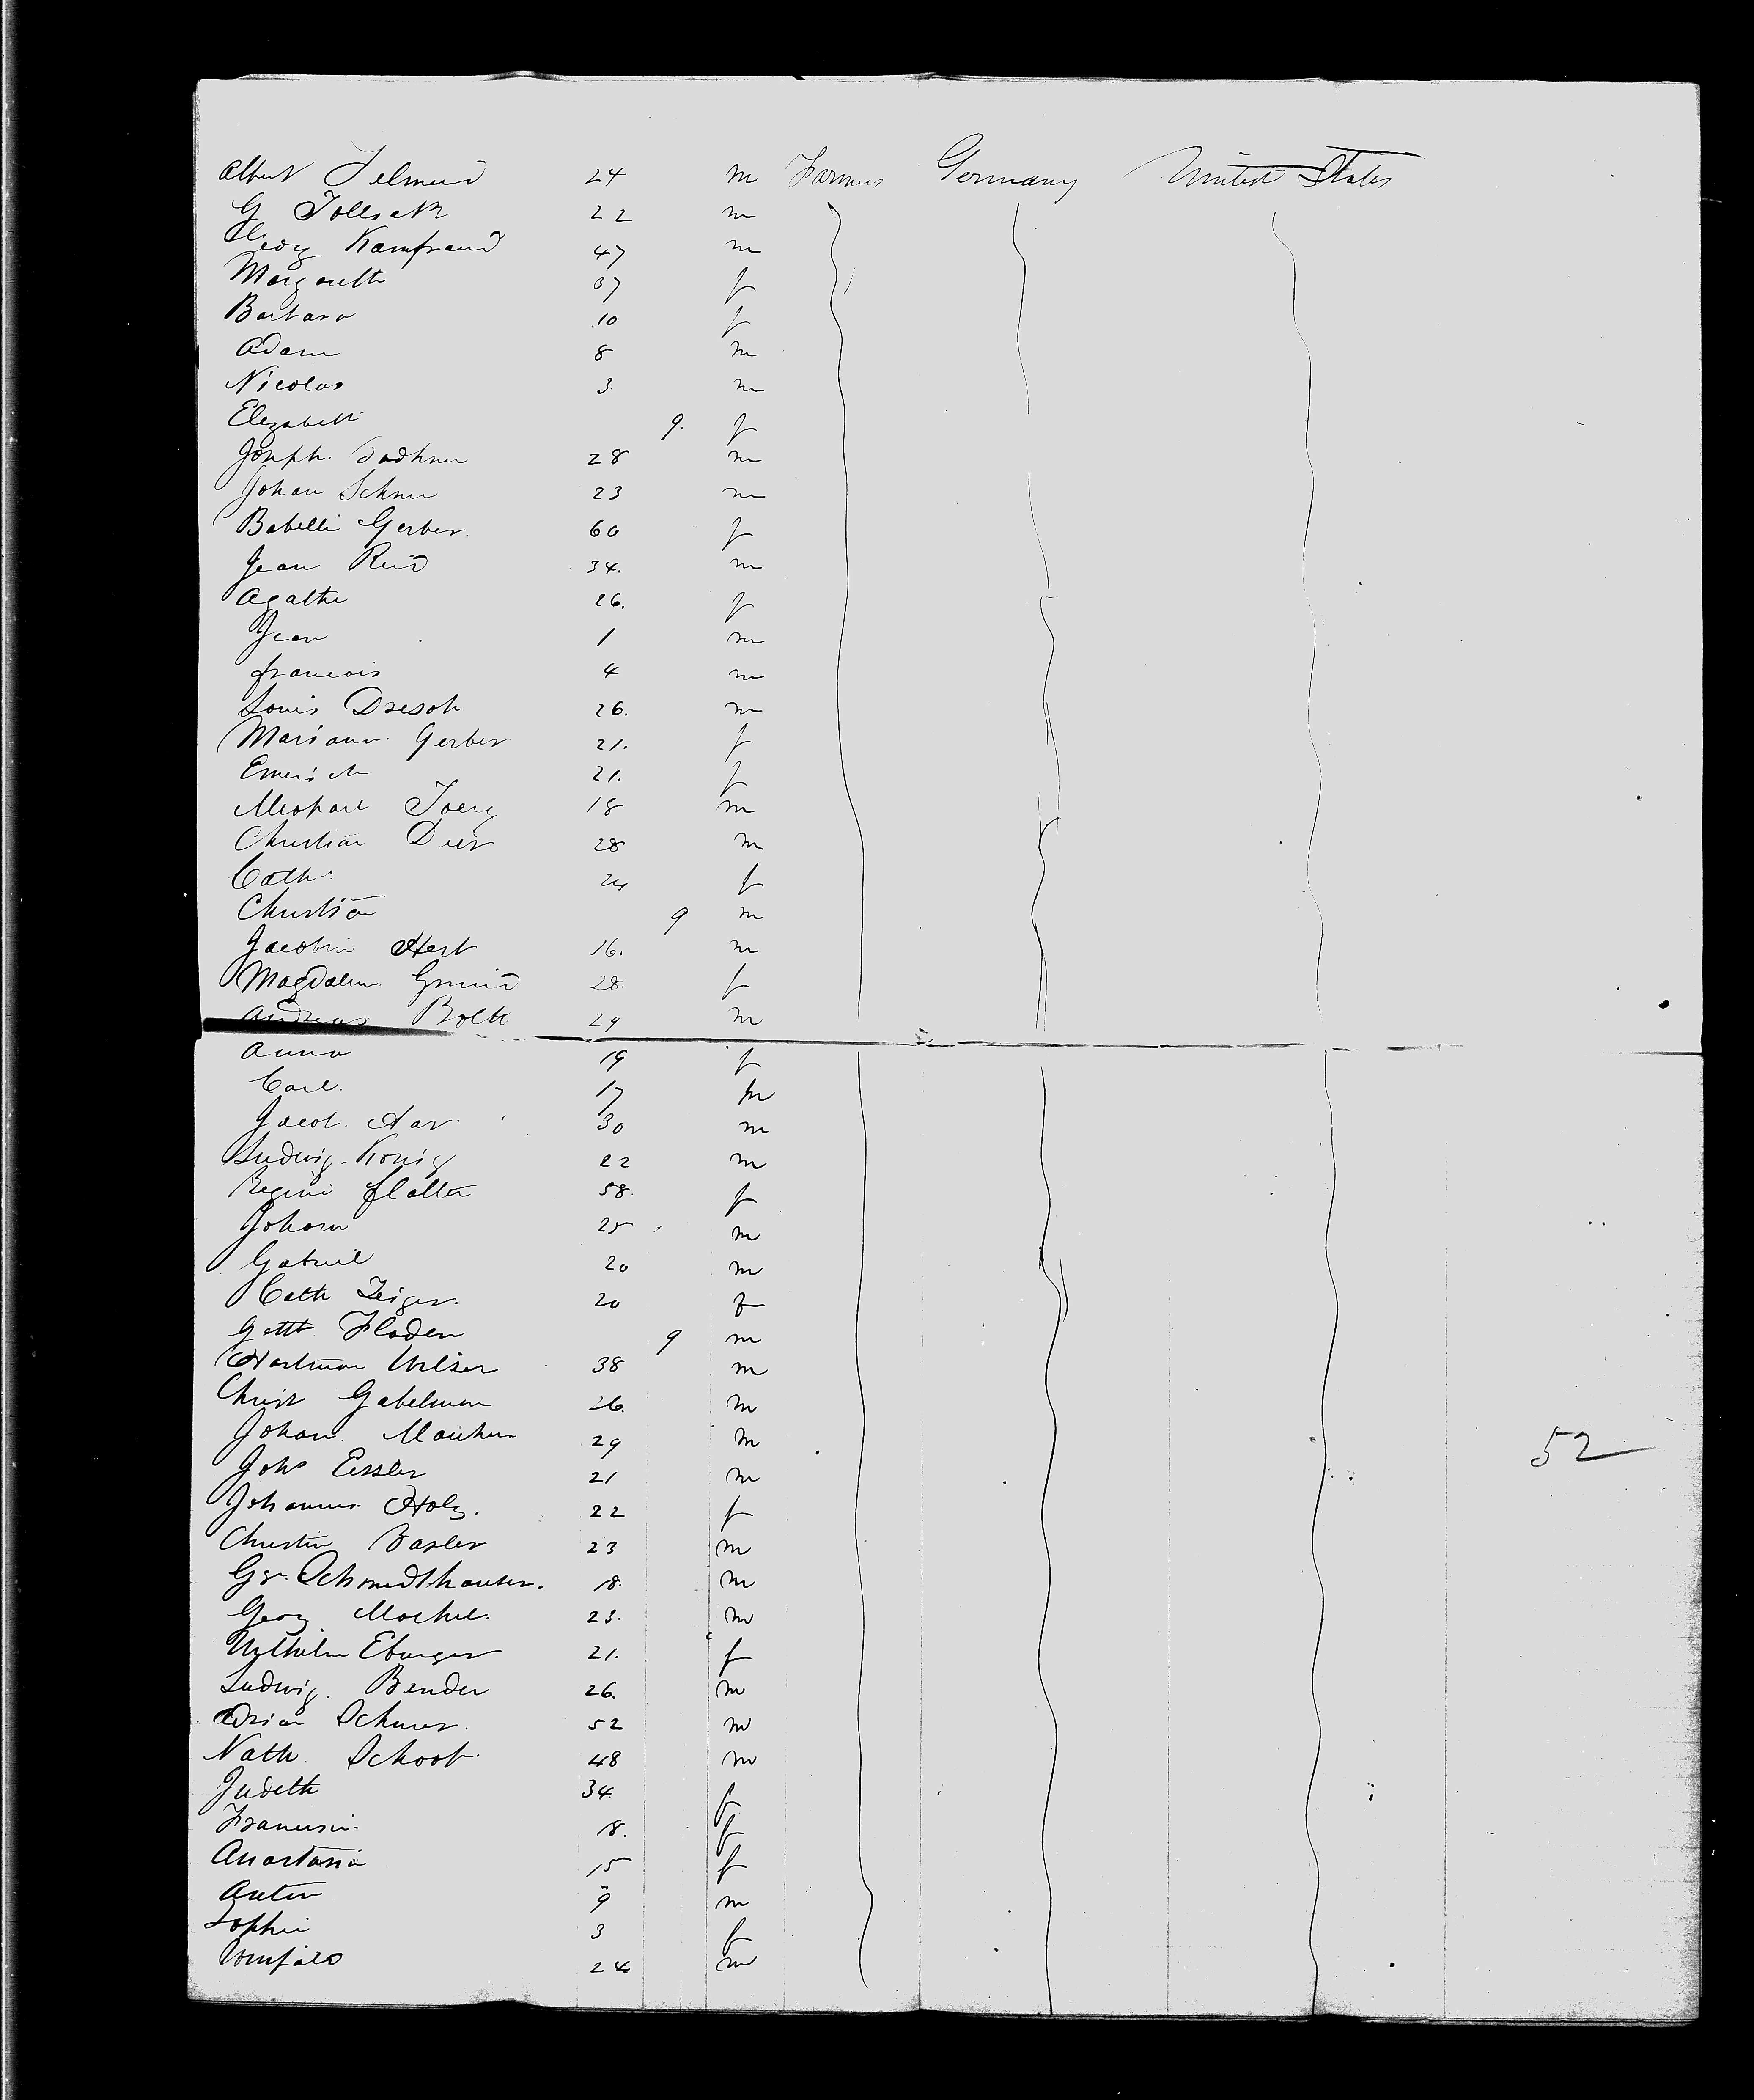 Albert 24 m Farmer Germany United States
G 22 m
Georg Kamfraud 47 m
Margareth 37 f
Barbara 10 f
Adam 8 m
Nicolas 3 m
Elizabeth 9 f
Joseph 28 m
Johan Schner 23 m
Babelli Gerber 60 f
Jean Reid 34 m
Agathe 26 f
Jean 1 m
francois 4 m
Louis Dresch 26 m
Mariann Gerber 21 f
21 f
Joerg 18 m
Christian Deer 28 m
Cath 24 f
Christian 9 m
Jacobin Hert 16 m
Magdalen 28 f
Andreas Bolk 29 m
Anna 19 f
Carl 17 m
Jacob 30 m
Ludwig König 22 m
Regine flatter 58 f
Johann 25 m
Gabriel 20 m
Cath Zeiger 20 f
Gottl Fladen 9 m
Hartman 38 m
Christ Gabelman 26 m
Johan 29 m
Joh Eissler 21 m
Johannes Holz 22 f
Christin Basler 23 m
Gg. Schmidthauser 18 m
Georg 23 m
Wilhelm Eburger 21 f
Ludwig Bender 26 m
Adrian 52 m
Nath Schoob 48 m
Judith 34 f
18 f
Anastasia 15 f
Anton 9 m
Sophie 3 f
24 m
52